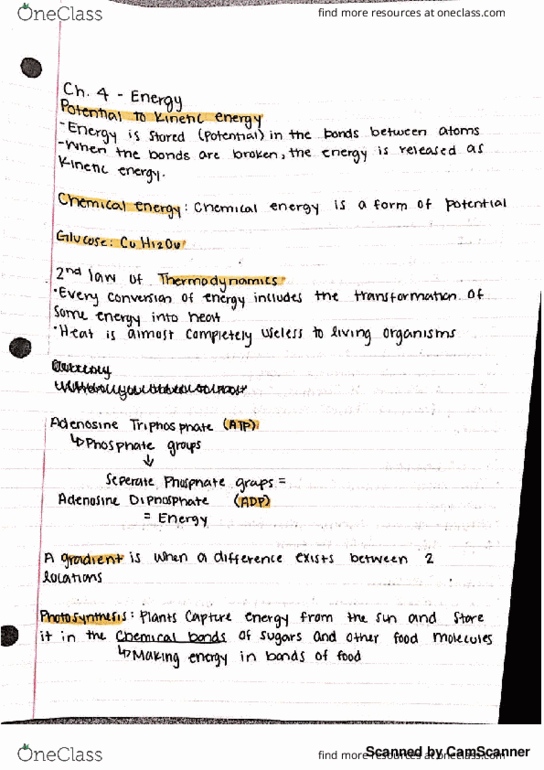 OneClass
find more resources at oneclass.com
Ch. 4 - Energy
Potential to Kinetic energy
-Energy is stored (potential) in the bonds between atoms
-When the bonds are broken, the energy is released as
Kinetic energy.
Chemical energy: Chemical energy is a form of potential
Glucose: C6 H12O6
2nd law of Thermodynamics
•Every conversion of energy includes the transformation of
some energy into heat
•Heat is almost completely useless to living organisms
Adenosine Triphosphate (ATP)
↳Phosphate groups
↓
Seperate Phosphate groups =
Adenosine Diphosphate (ADP)
= Energy
A gradient is when a difference exists between 2
locations
Photosynthesis: Plants capture energy from the sun and store
it in the chemical bonds of sugars and other food molecules
↳Making energy in bonds of food
OneClass
find more resources at oneclass.com
Scanned by CamScanner